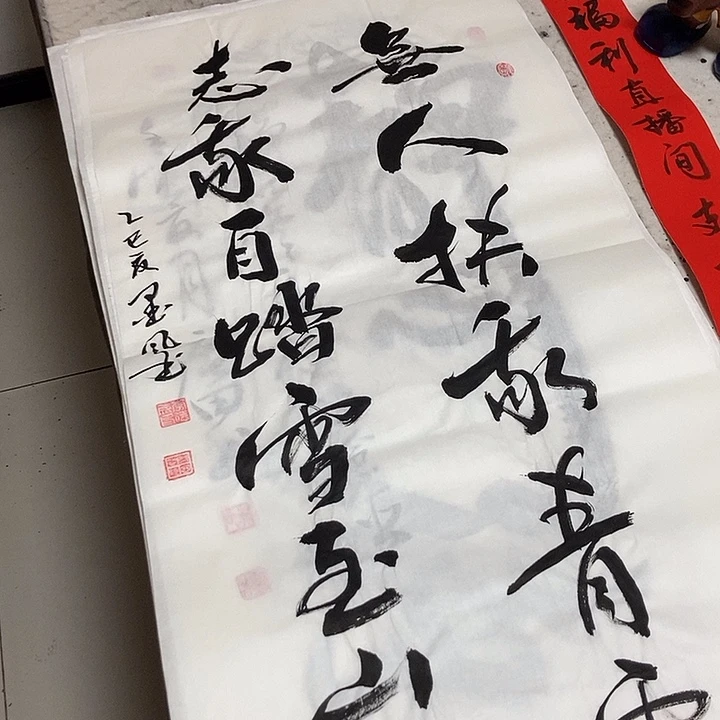 無人扶我青雲
志我自踏雪至山
乙巳夏墨
福利直播间支